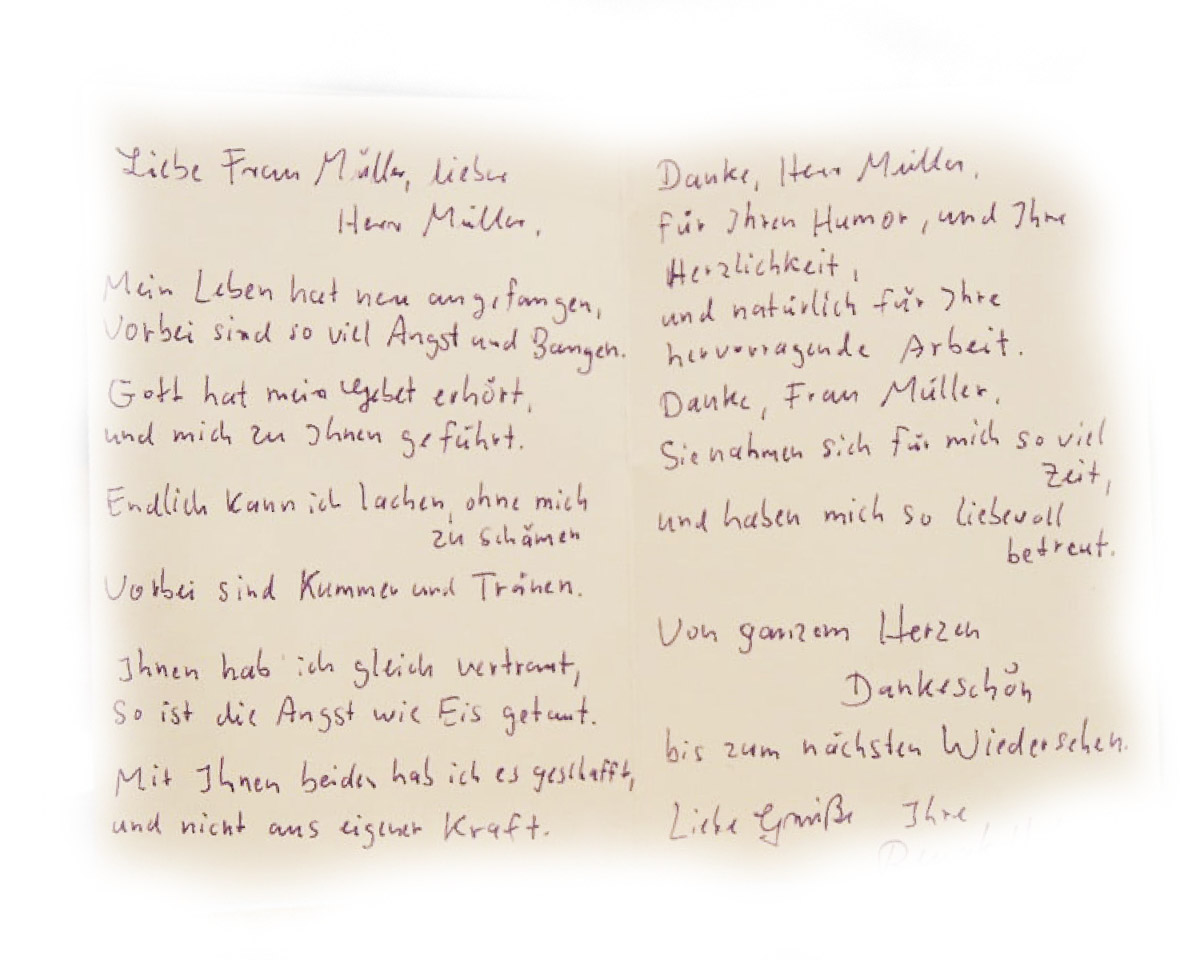 Liebe Frau Müller, lieber
Herr Müller,
Mein Leben hat neu angefangen,
Vorbei sind so viel Angst und Bangen.
Gott hat mein Gebet erhört,
und mich zu Ihnen geführt.
Endlich kann ich lachen, ohne mich
zu schämen
Vorbei sind Kummer und Tränen.
Ihnen hab ich gleich vertraut,
So ist die Angst wie Eis getaut.
Mit Ihnen beiden hab ich es geschafft,
und nicht aus eigener Kraft.
Danke, Herr Müller,
für Ihren Humor, und Ihre
Herzlichkeit,
und natürlich für Ihre
hervorragende Arbeit.
Danke, Frau Müller,
Sie nahmen sich für mich so viel
Zeit,
und haben mich so liebevoll
betreut.
Von ganzem Herzen
Dankeschön
bis zum nächsten Wiedersehen.
Liebe Grüße Ihre